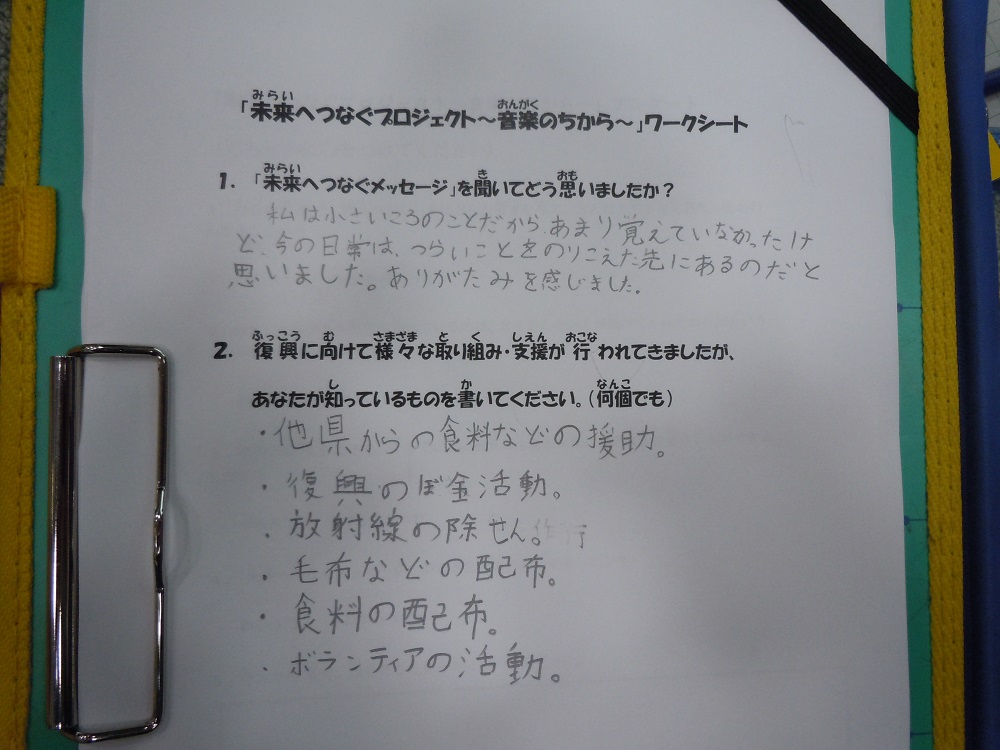 「未来へつなぐプロジェクト～音楽のちから～」ワークシート
1. 「未来へつなぐメッセージ」を聞いてどう思いましたか？
私は小さいころのことだから、あまり覚えていなかったけ
ど、今の日常は、つらいことをのりこえた先にあるのだと
思いました。ありがたみを感じました。
2. 復興に向けて様々な取り組み・支援が行われてきましたが、
あなたが知っているものを書いてください。（何個でも）
・他県からの食料などの援助。
・復興のぼ金活動。
・放射線の除せん。
・毛布などの配布。
・食料の配布。
・ボランティアの活動。